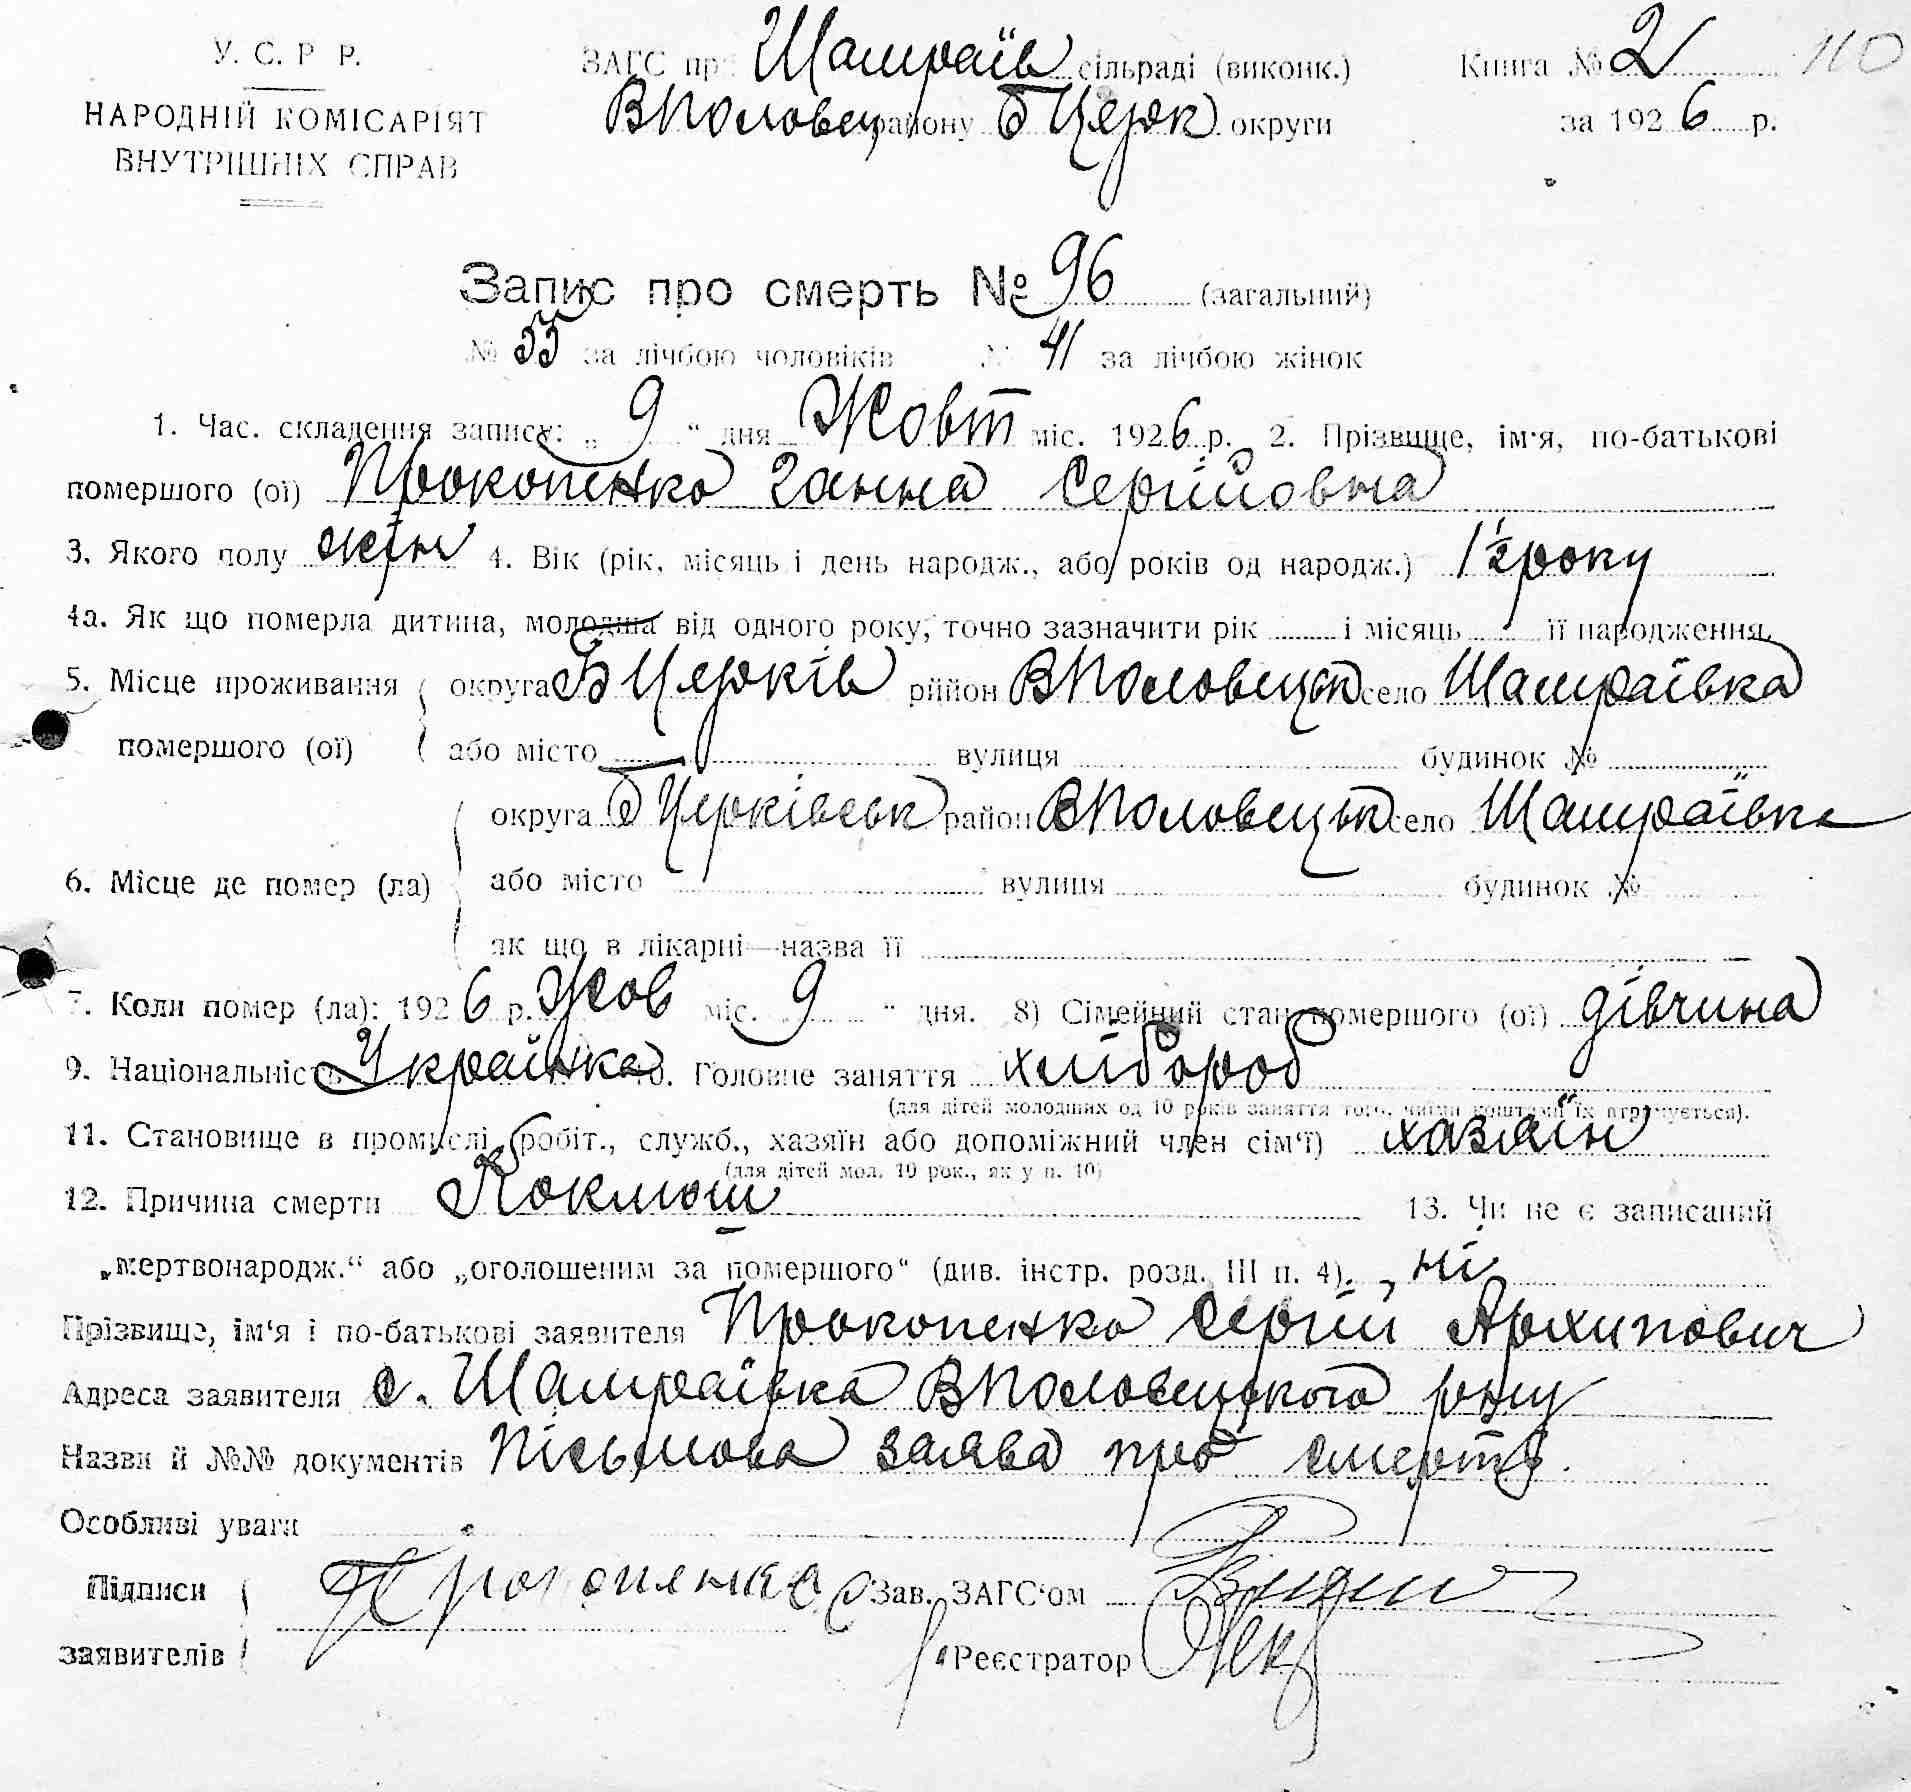 У. С. Р. Р.
НАРОДНІЙ КОМІСАРІЯТ
ВНУТРІШНІХ СПРАВ
ЗАГС при Шамраїв сільраді (виконк.)
ВПоловец району БЦерк округи
Книга № 2
110
за 1926 р.
Запис про смерть № 96 (загальний)
№ 55 за лічбою чоловіків № 41 за лічбою жінок
1. Час. складення запису: „ 9 “ дня Жовт міс. 1926 р. 2. Прізвище, ім'я, по-батькові
помершого (ої) Прокопенко Ганна Сергійовна
3. Якого полу жін 4. Вік (рік, місяць і день народж., або років од народж.) 1 ½ року
4а. Як що померла дитина, молодша від одного року, точно зазначити рік і місяць її народження.
5. Місце проживання помершого (ої) округа БЦерків рййон ВПоловецьк село Шамраївка
або місто вулиця будинок №
6. Місце де помер (ла) округа БЦерківськ район ВПоловецьк село Шамраївка
або місто вулиця будинок №
як що в лікарні—назва її
7. Коли помер (ла): 1926 р. Жов міс. 9 “ дня. 8) Сімейний стан помершого (ої) дівчина
9. Національність Українка 10. Головне заняття хлібороб
(для дітей молодших од 10 років заняття того, чиїми коштами їх втримується).
11. Становище в промислі (робіт., служб., хазяїн або допоміжний член сім'ї) хазяїн
(для дітей мол. 10 рок., як у п. 10)
12. Причина смерти Коклюш 13. Чи не є записаний
„мертвонародж.“ або „оголошеним за помершого“ (див. інстр. розд. III п. 4). ні
Прізвище, ім'я і по-батькові заявителя Прокопенко Сергій Архипович
Адреса заявителя с. Шамраївка ВПоловецького рну
Назви й №№ документів Пісьмова заява про смерть.
Особливі уваги
Підписи заявителів Прокопенко С Зав. ЗАГС'ом
Реєстратор